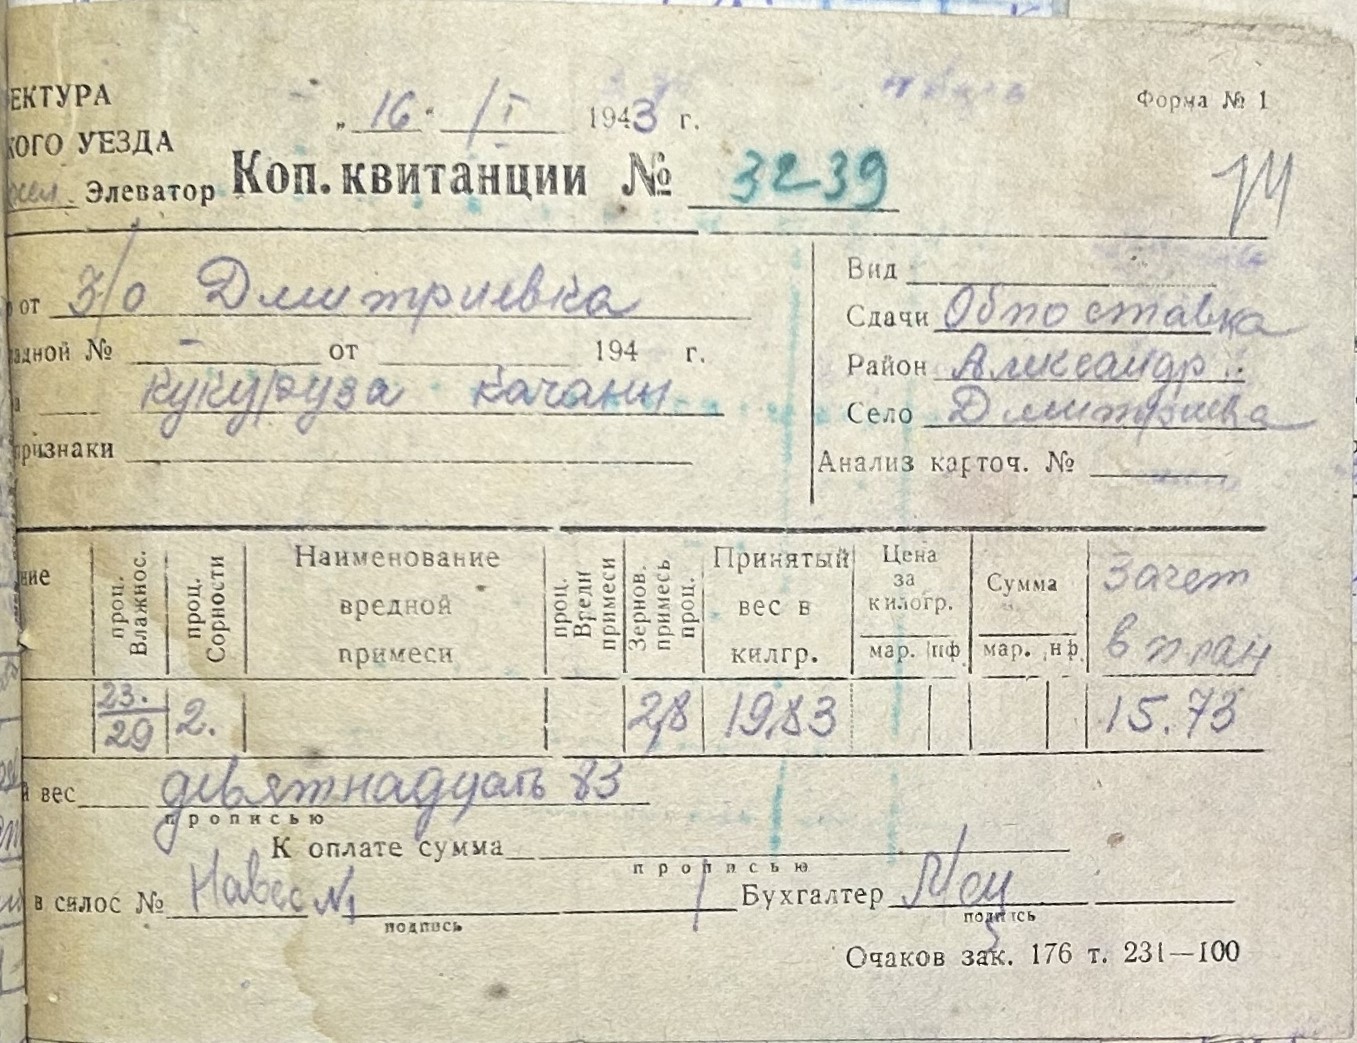 ЕКТУРА
„ 16 “ /I 1943 г.
Форма № 1
КОГО УЕЗДА
Элеватор Коп. квитанции № 3239
от З/о Дмитриевка
Вид
Сдачи Обпоставка
адной № - от 194 г.
Район Александр.
а кукуруза качаны
Село Дмитриева
признаки
Анализ карточ. №
ние
проц. Влажнос.
проц. Сорности
Наименование вредной примеси
проц. Вредн примеси
Зернов. примесь проц.
Принятый вес в килгр.
Цена за килогр.
мар. пф.
Сумма
мар. нф.
Зачет в план
23. / 29 2. 2,8 1983 15.73
й вес девятнадцать 83
прописью
К оплате сумма
прописью
в силос № Навес №1
подпись
Бухгалтер
подпись
Очаков зак. 176 т. 231—100